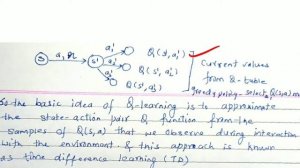 S a, R S' a'₁ Q(s', a'₁)
a'₂ Q(s', a'₂)
Q(s', a'₃)
Current values
from Q-table
greedy policy - select Q(s,a) max
So the basic idea of Q-learning is to approximate
the state-action pair Q function from the
samples of Q(s,a) that we observe during interaction
with the environment. & this approach is known
as time difference learning (TD)